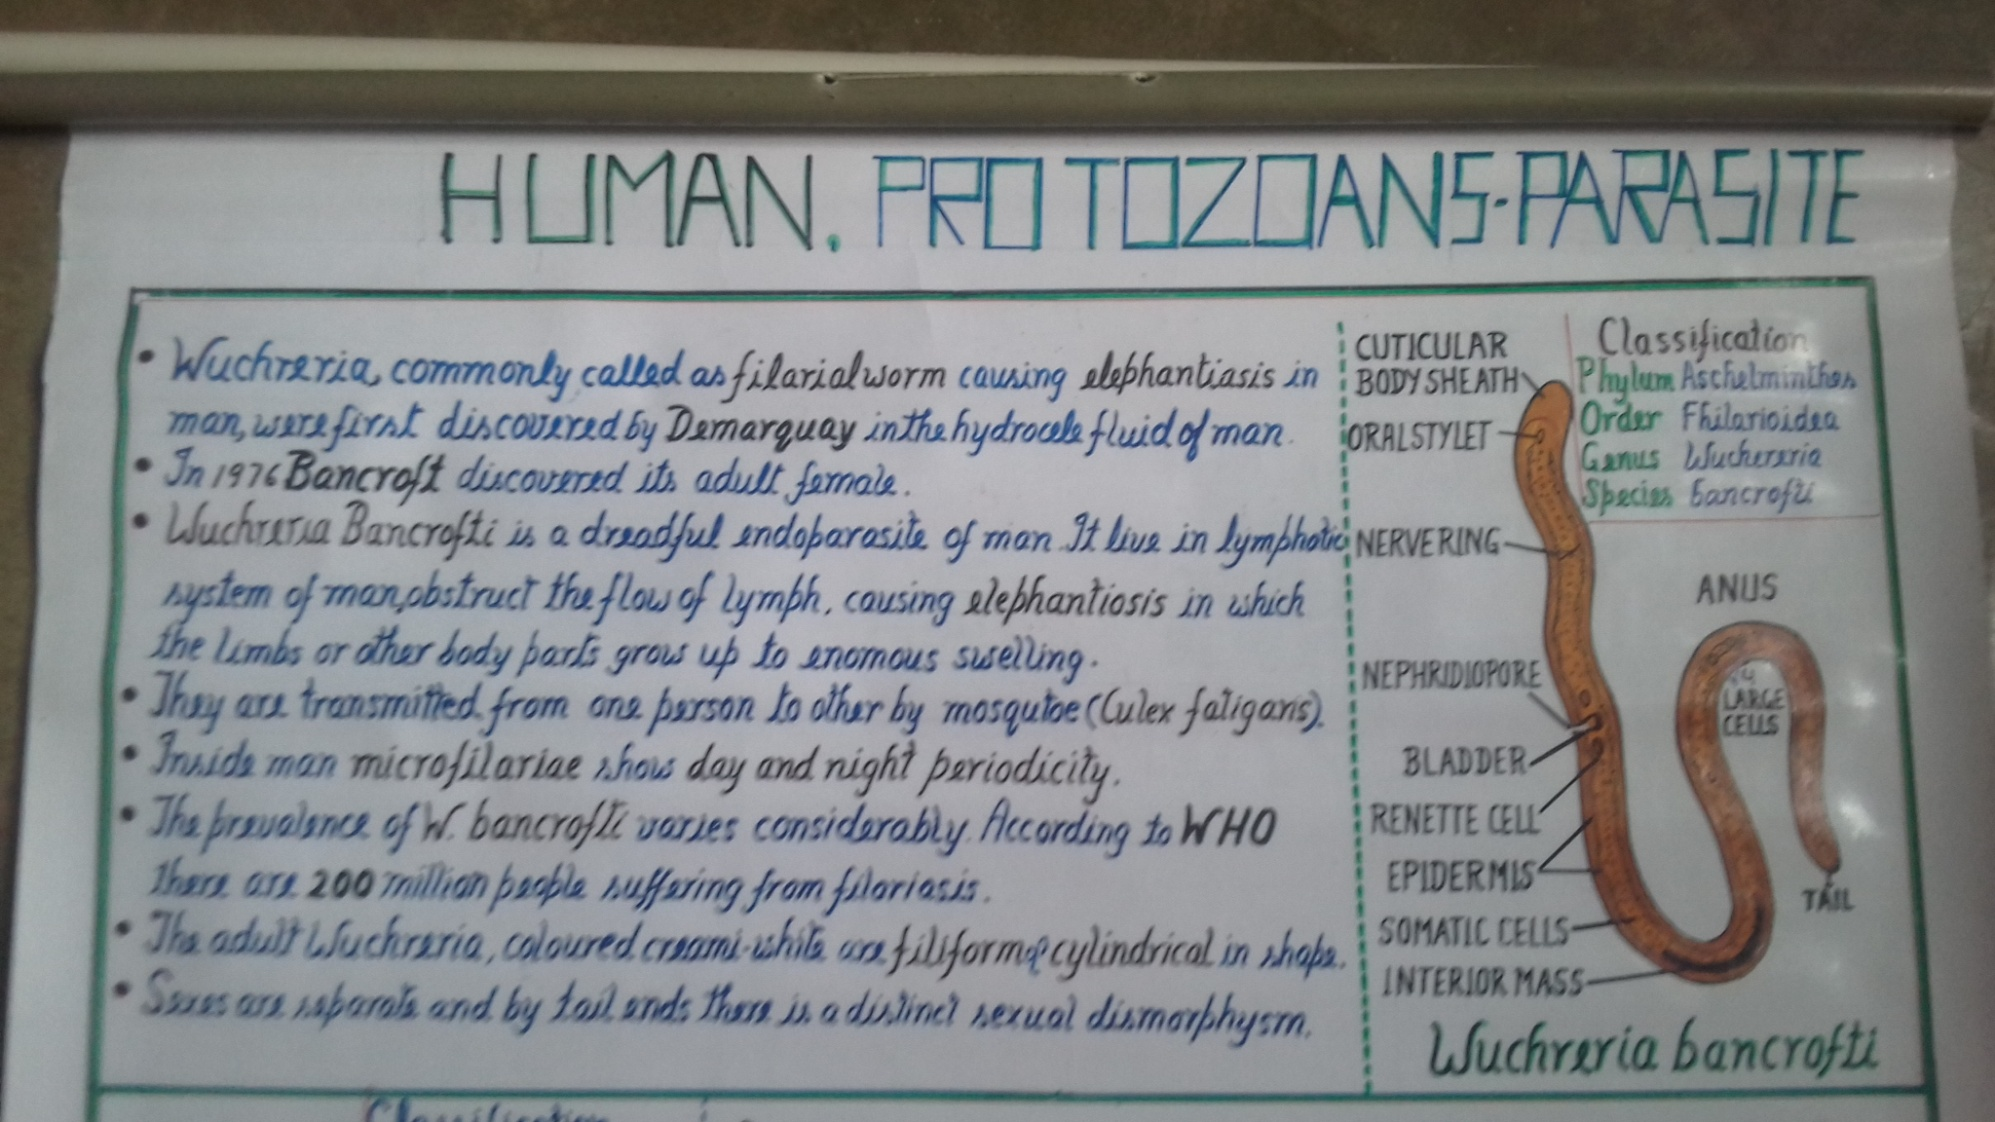 HUMAN. PROTOZOANS-PARASITE
• Wuchreria, commonly called as filarial worm causing elephantiasis in
man, were first discovered by Demarquay in the hydrocele fluid of man.
• In 1976 Bancroft discovered its adult female.
• Wuchreria Bancrofti is a dreadful endoparasite of man. It live in lymphatic
system of man, obstruct the flow of lymph, causing elephantiosis in which
the limbs or other body parts grow up to enomous swelling.
• They are transmitted from one person to other by mosqutoe (Culex fatigans).
• Inside man microfilariae show day and night periodicity.
• The prevalence of W. bancrofti varies considerably. According to WHO
there are 200 million people suffering from filariasis.
• The adult Wuchreria, coloured creami-white are filiform & cylindrical in shape.
• Sexes are separate and by tail ends there is a distinct sexual dismorphysm.
CUTICULAR
BODY SHEATH
ORAL STYLET
NERVE RING
NEPHRIDIOPORE
BLADDER
RENETTE CELL
EPIDERMIS
SOMATIC CELLS
INTERIOR MASS
Classification
Phylum Aschelminthes
Order Fhilarioidea
Genus Wuchereria
Species bancrofti
ANUS
4
LARGE
CELLS
TAIL
Wuchreria bancrofti
Classification